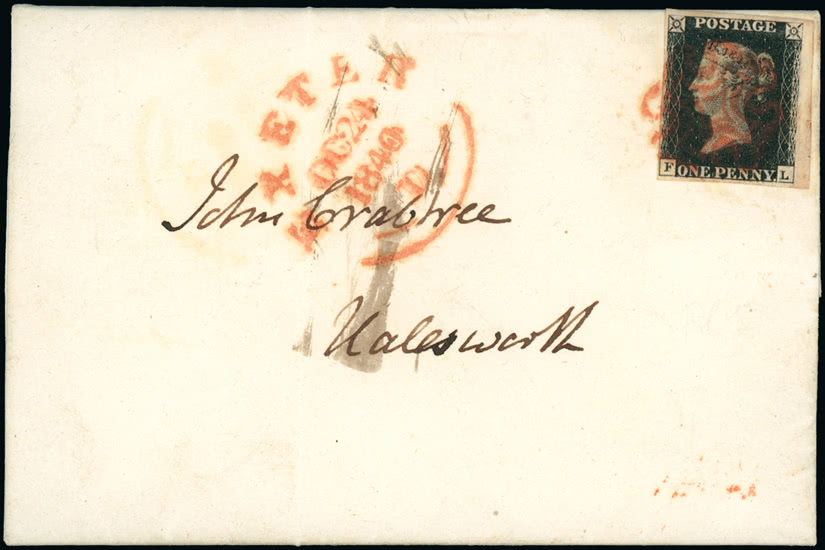 POSTAGE
ONE PENNY
F L
OC 24
1840
D
John Crabtree
Halesworth